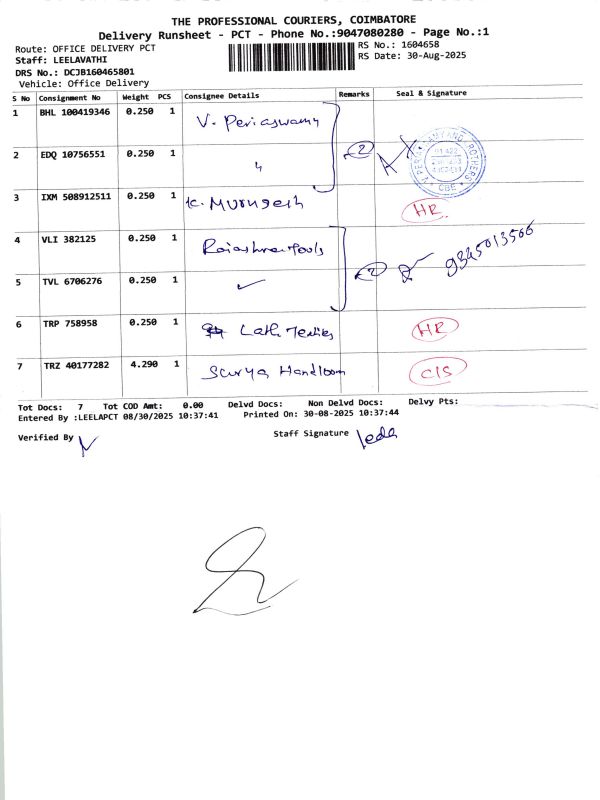 THE PROFESSIONAL COURIERS, COIMBATORE
Delivery Runsheet - PCT - Phone No.:9047080280 - Page No.:1
Route: OFFICE DELIVERY PCT
RS No.: 1604658
Staff: LEELAVATHI
RS Date: 30-Aug-2025
DRS No.: DCJB160465801
Vehicle: Office Delivery
S No Consignment No Weight PCS Consignee Details Remarks Seal & Signature
1 BHL 100419346 0.250 1 V. Periaswamy
2 EDQ 10756551 0.250 1 " 2
3 IXM 508912511 0.250 1 K. Murugesh HR
4 VLI 382125 0.250 1 Rajashree Tools
9345013566
5 TVL 6706276 0.250 1 ✓ 2
6 TRP 758958 0.250 1 Lath Textiles HR
7 TRZ 40177282 4.290 1 Surya Handloom C/S
Tot Docs: 7 Tot COD Amt: 0.00 Delvd Docs: Non Delvd Docs: Delvy Pts:
Entered By :LEELAPCT 08/30/2025 10:37:41 Printed On: 30-08-2025 10:37:44
Verified By
Staff Signature leela